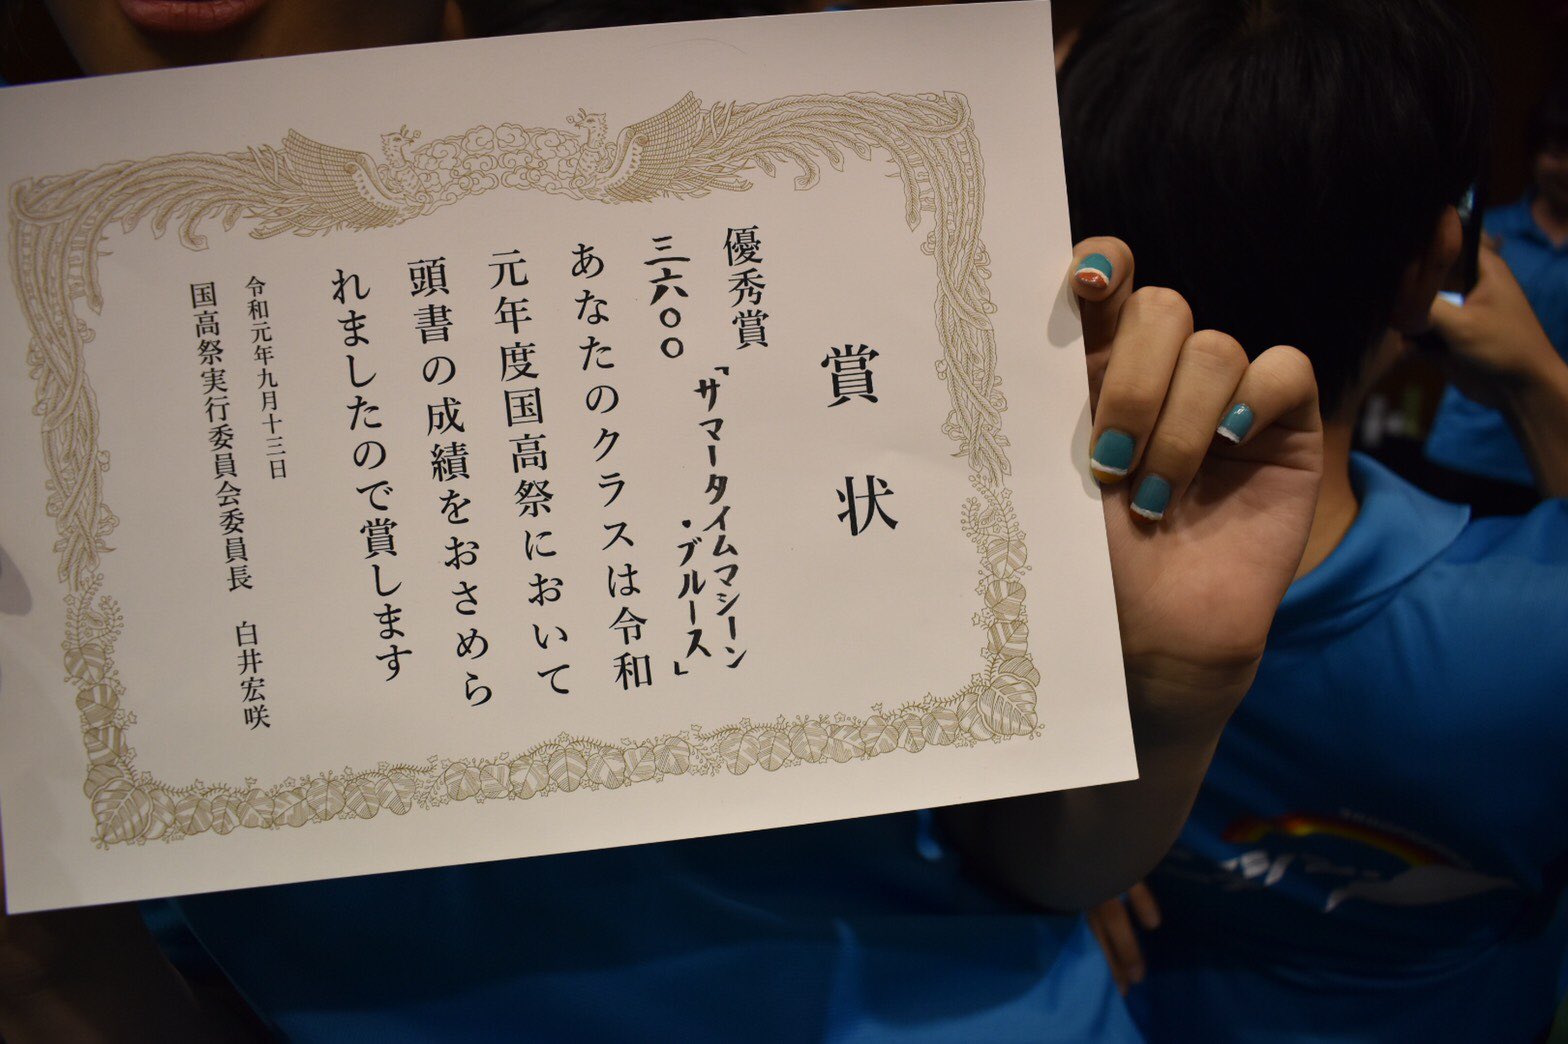 賞状
優秀賞
三六〇〇
「サマータイムマシーン
・ブルース」
あなたのクラスは令和
元年度国高祭において
頭書の成績をおさめら
れましたので賞します
令和元年九月十三日
国高祭実行委員会委員長 白井宏咲